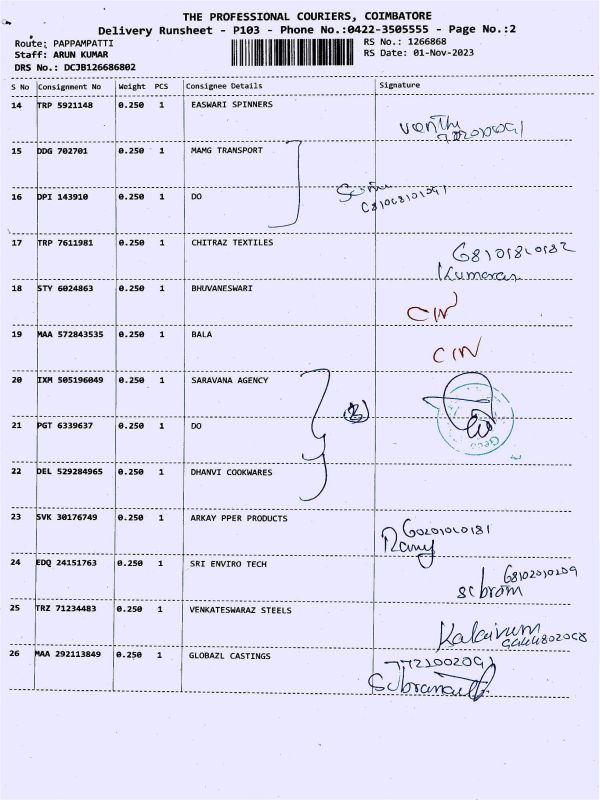 THE PROFESSIONAL COURIERS, COIMBATORE
Delivery Runsheet - P103 - Phone No.:0422-3505555 - Page No.:2
Route: PAPPAMPATTI RS No.: 1266868
Staff: ARUN KUMAR RS Date: 01-Nov-2023
DRS No.: DCJB126686802
S No Consignment No Weight PCS Consignee Details Signature
14 TRP 5921148 0.250 1 EASWARI SPINNERS
15 DDG 702701 0.250 1 MAMG TRANSPORT
16 DPI 143910 0.250 1 DO
17 TRP 7611981 0.250 1 CHITRAZ TEXTILES
Kumaran
18 STY 6024863 0.250 1 BHUVANESWARI
CIN
19 MAA 572843535 0.250 1 BALA
CIN
20 IXM 505196049 0.250 1 SARAVANA AGENCY
21 PGT 6339637 0.250 1 DO
22 DEL 529284965 0.250 1 DHANVI COOKWARES
23 SVK 30176749 0.250 1 ARKAY PPER PRODUCTS
24 EDQ 24151763 0.250 1 SRI ENVIRO TECH
25 TRZ 71234483 0.250 1 VENKATESWARAZ STEELS
26 MAA 292113849 0.250 1 GLOBAZL CASTINGS
7721002091